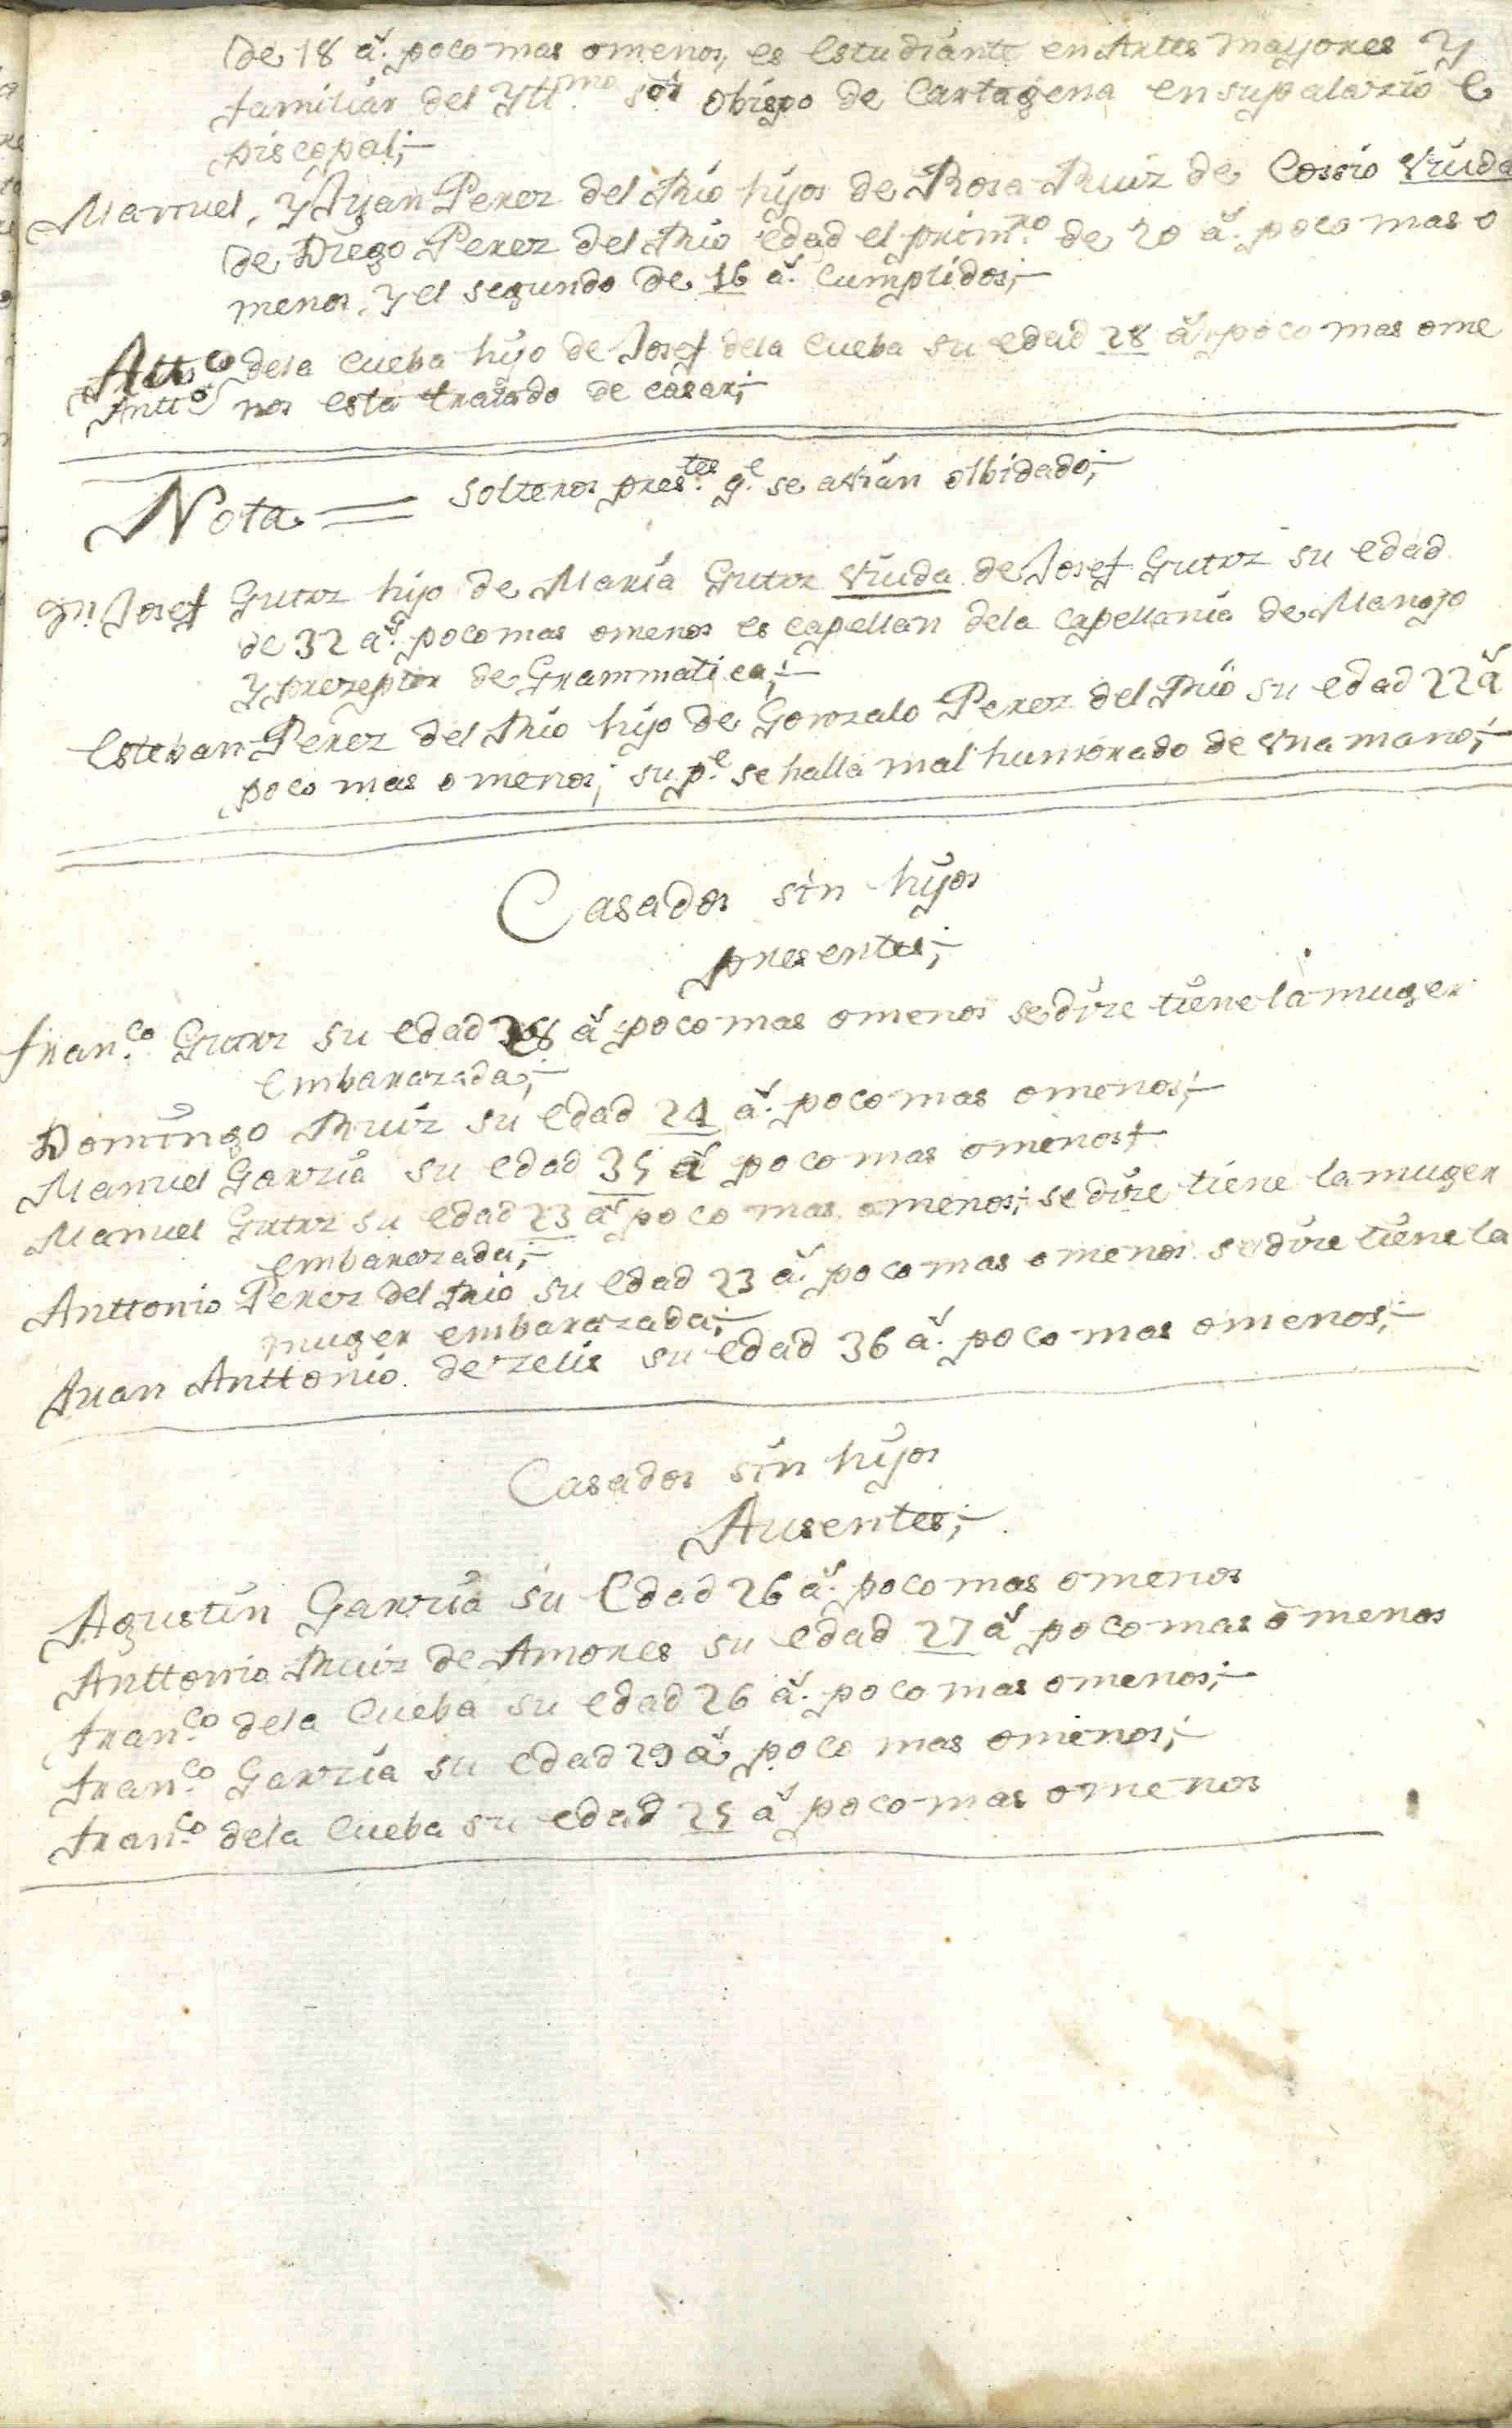 de 18 a.s poco mas omenos, es estudiante en Artes mayores y
familiar del Yll.mo s.or obispo de Cartagena en supalazio e
piscopal;-
Manuel, y Juan Perez del Rio hijos de Rosa Ruiz de Cossio viuda
de Diego Perez del Rio edad el prim.ro de 20 a.s poco mas o
menos, y el segundo de 16 a.s cumplidos;-
dela Cueba hijo de Josef dela Cueba su edad 28 a.s poco mas ome
Antt.o nos esta tratado de casar;-
Nota = solteros pres.tes q.e se avian olbidado;-
Josef Gutrz hijo de Maria Gutrz viuda de Josef Gutrz su edad
de 32 a.s poco mas omenos es capellan dela capellania de
y prezeptor de Grammatica;-
Esteban Perez del Rio hijo de Gonzalo Perez del Rio su edad 22 a.s
poco mas omenos; su p.e se halla mal humorado de vna mano;-
Casados sin hijos
presentes;-
Fran.co Gutrz su edad a.s poco mas omenos sedize tiene la muger
embarazada;-
Domingo Ruiz su edad 24 a.s poco mas omenos;-
Manuel Garzia su edad 35 a.s poco mas omenos;-
Manuel Gutrz su edad 23 a.s poco mas omenos; se dize tiene la muger
embarazada;-
Anttonio Perez del Rio su edad 23 a.s poco mas omenos sedize tiene la
muger embarazada;-
Juan Anttonio de zelis su edad 36 a.s poco mas omenos;-
Casados sin hijos
Ausentes;-
Agustin Garzia su Edad 26 a.s poco mas omenos
Anttonio Ruiz de Amores su edad 27 a.s poco mas omenos
Fran.co dela Cueba su edad 26 a.s poco mas omenos;-
Fran.co Garzia su edad 29 a.s poco mas omenos;-
Fran.co dela Cueba su edad 25 a.s poco mas omenos